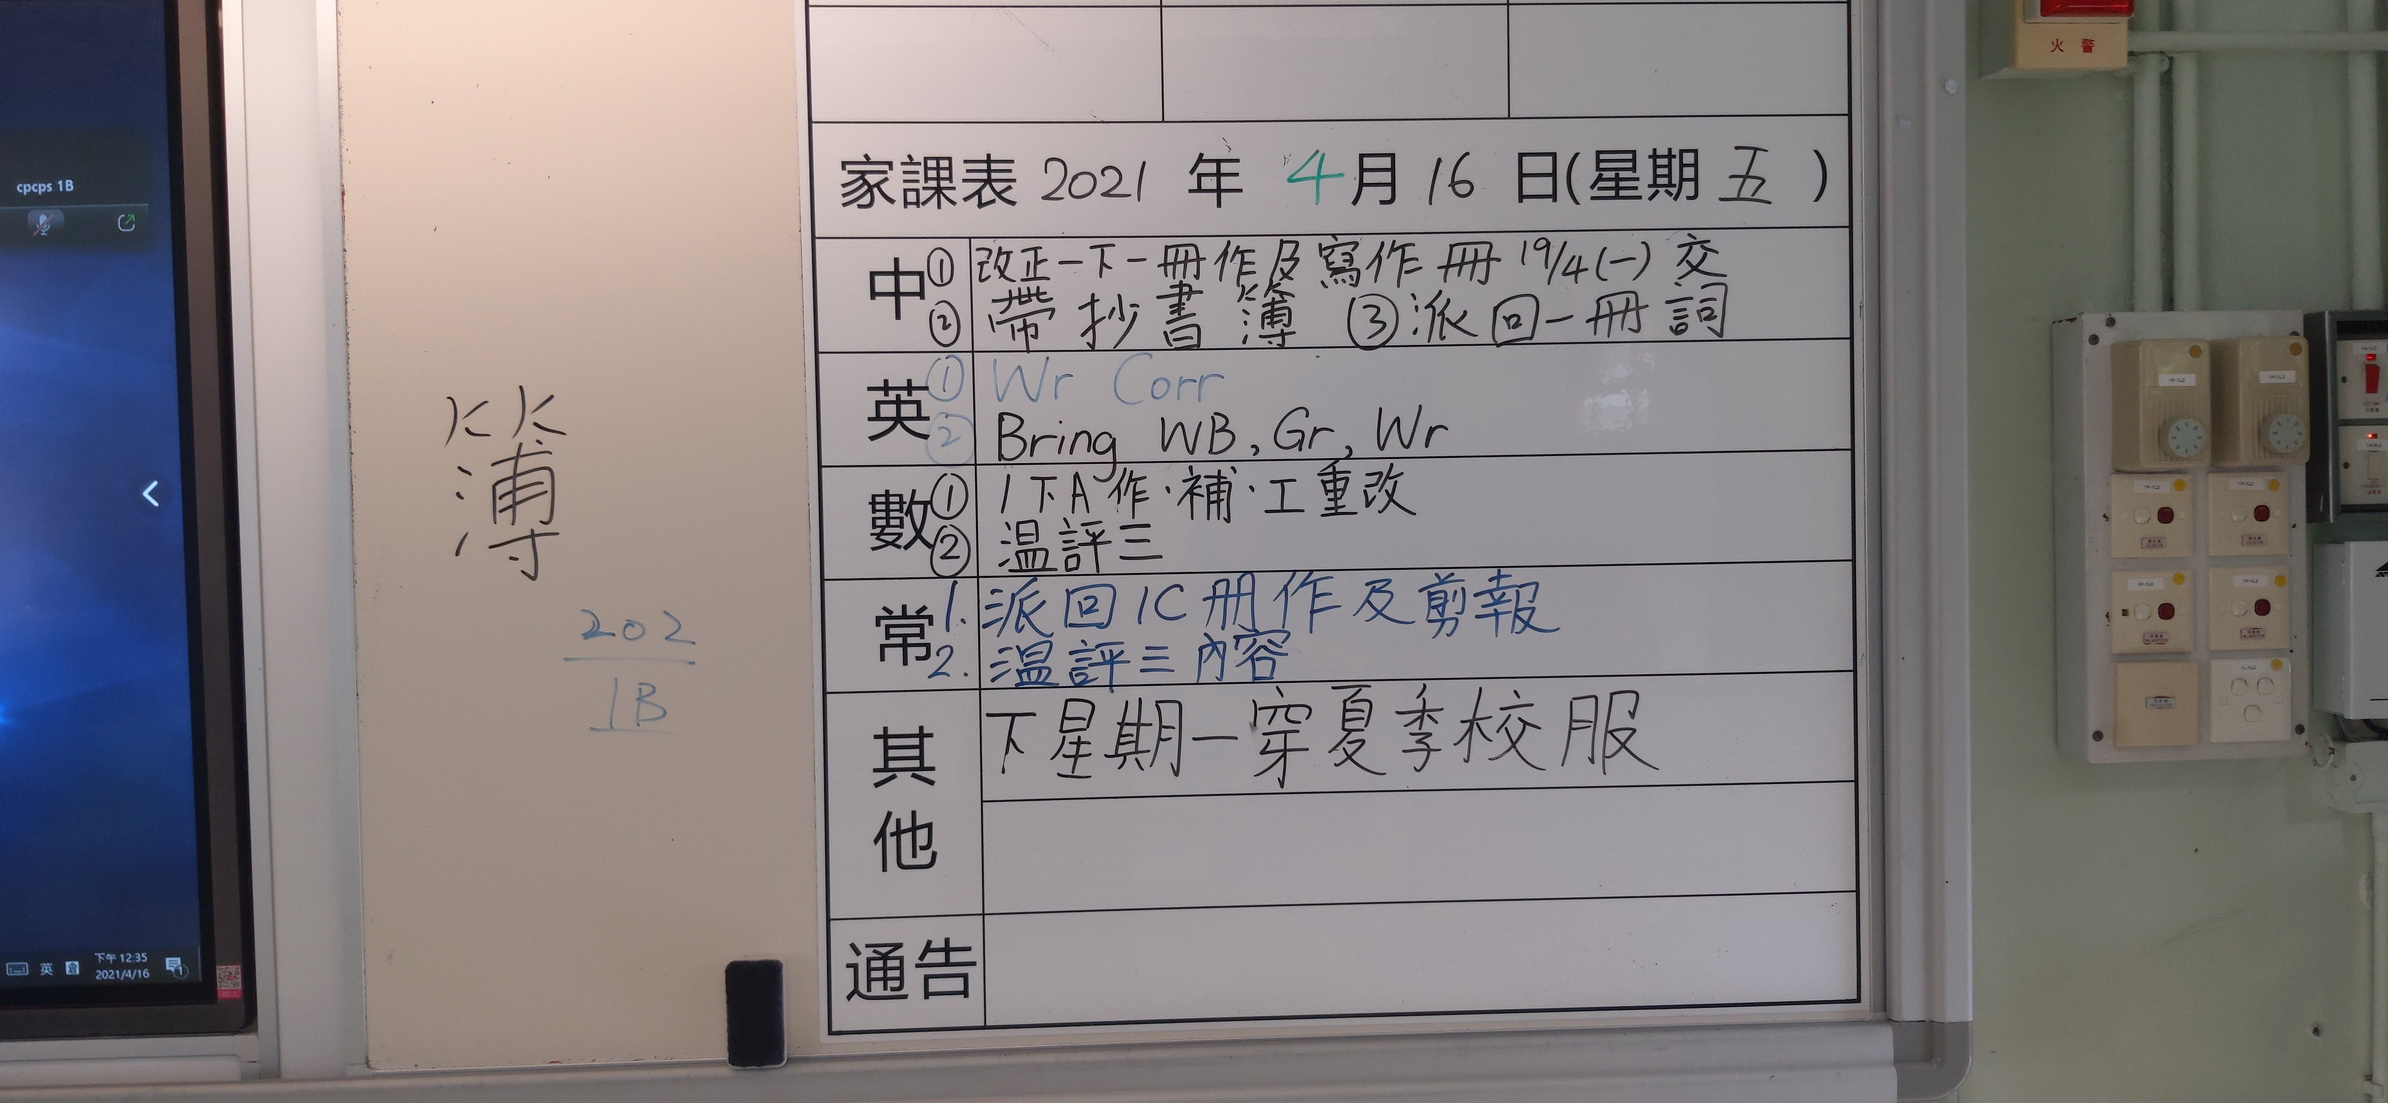 cpcps 1B
英
下午 12:35
2021/4/16
1
簿
202
1B
家課表 2021 年 4月 16 日(星期 五 )
中 ① 改正一下一冊作及寫作冊 19/4(一) 交
② 帶抄書簿 ③派回一冊詞
英 ① Wr Corr
② Bring WB, Gr, Wr
數 ① 1下A作·補·工重改
② 温評三
常 1. 派回1C冊作及剪報
2. 温評三內容
其他 下星期一穿夏季校服
通告
火警